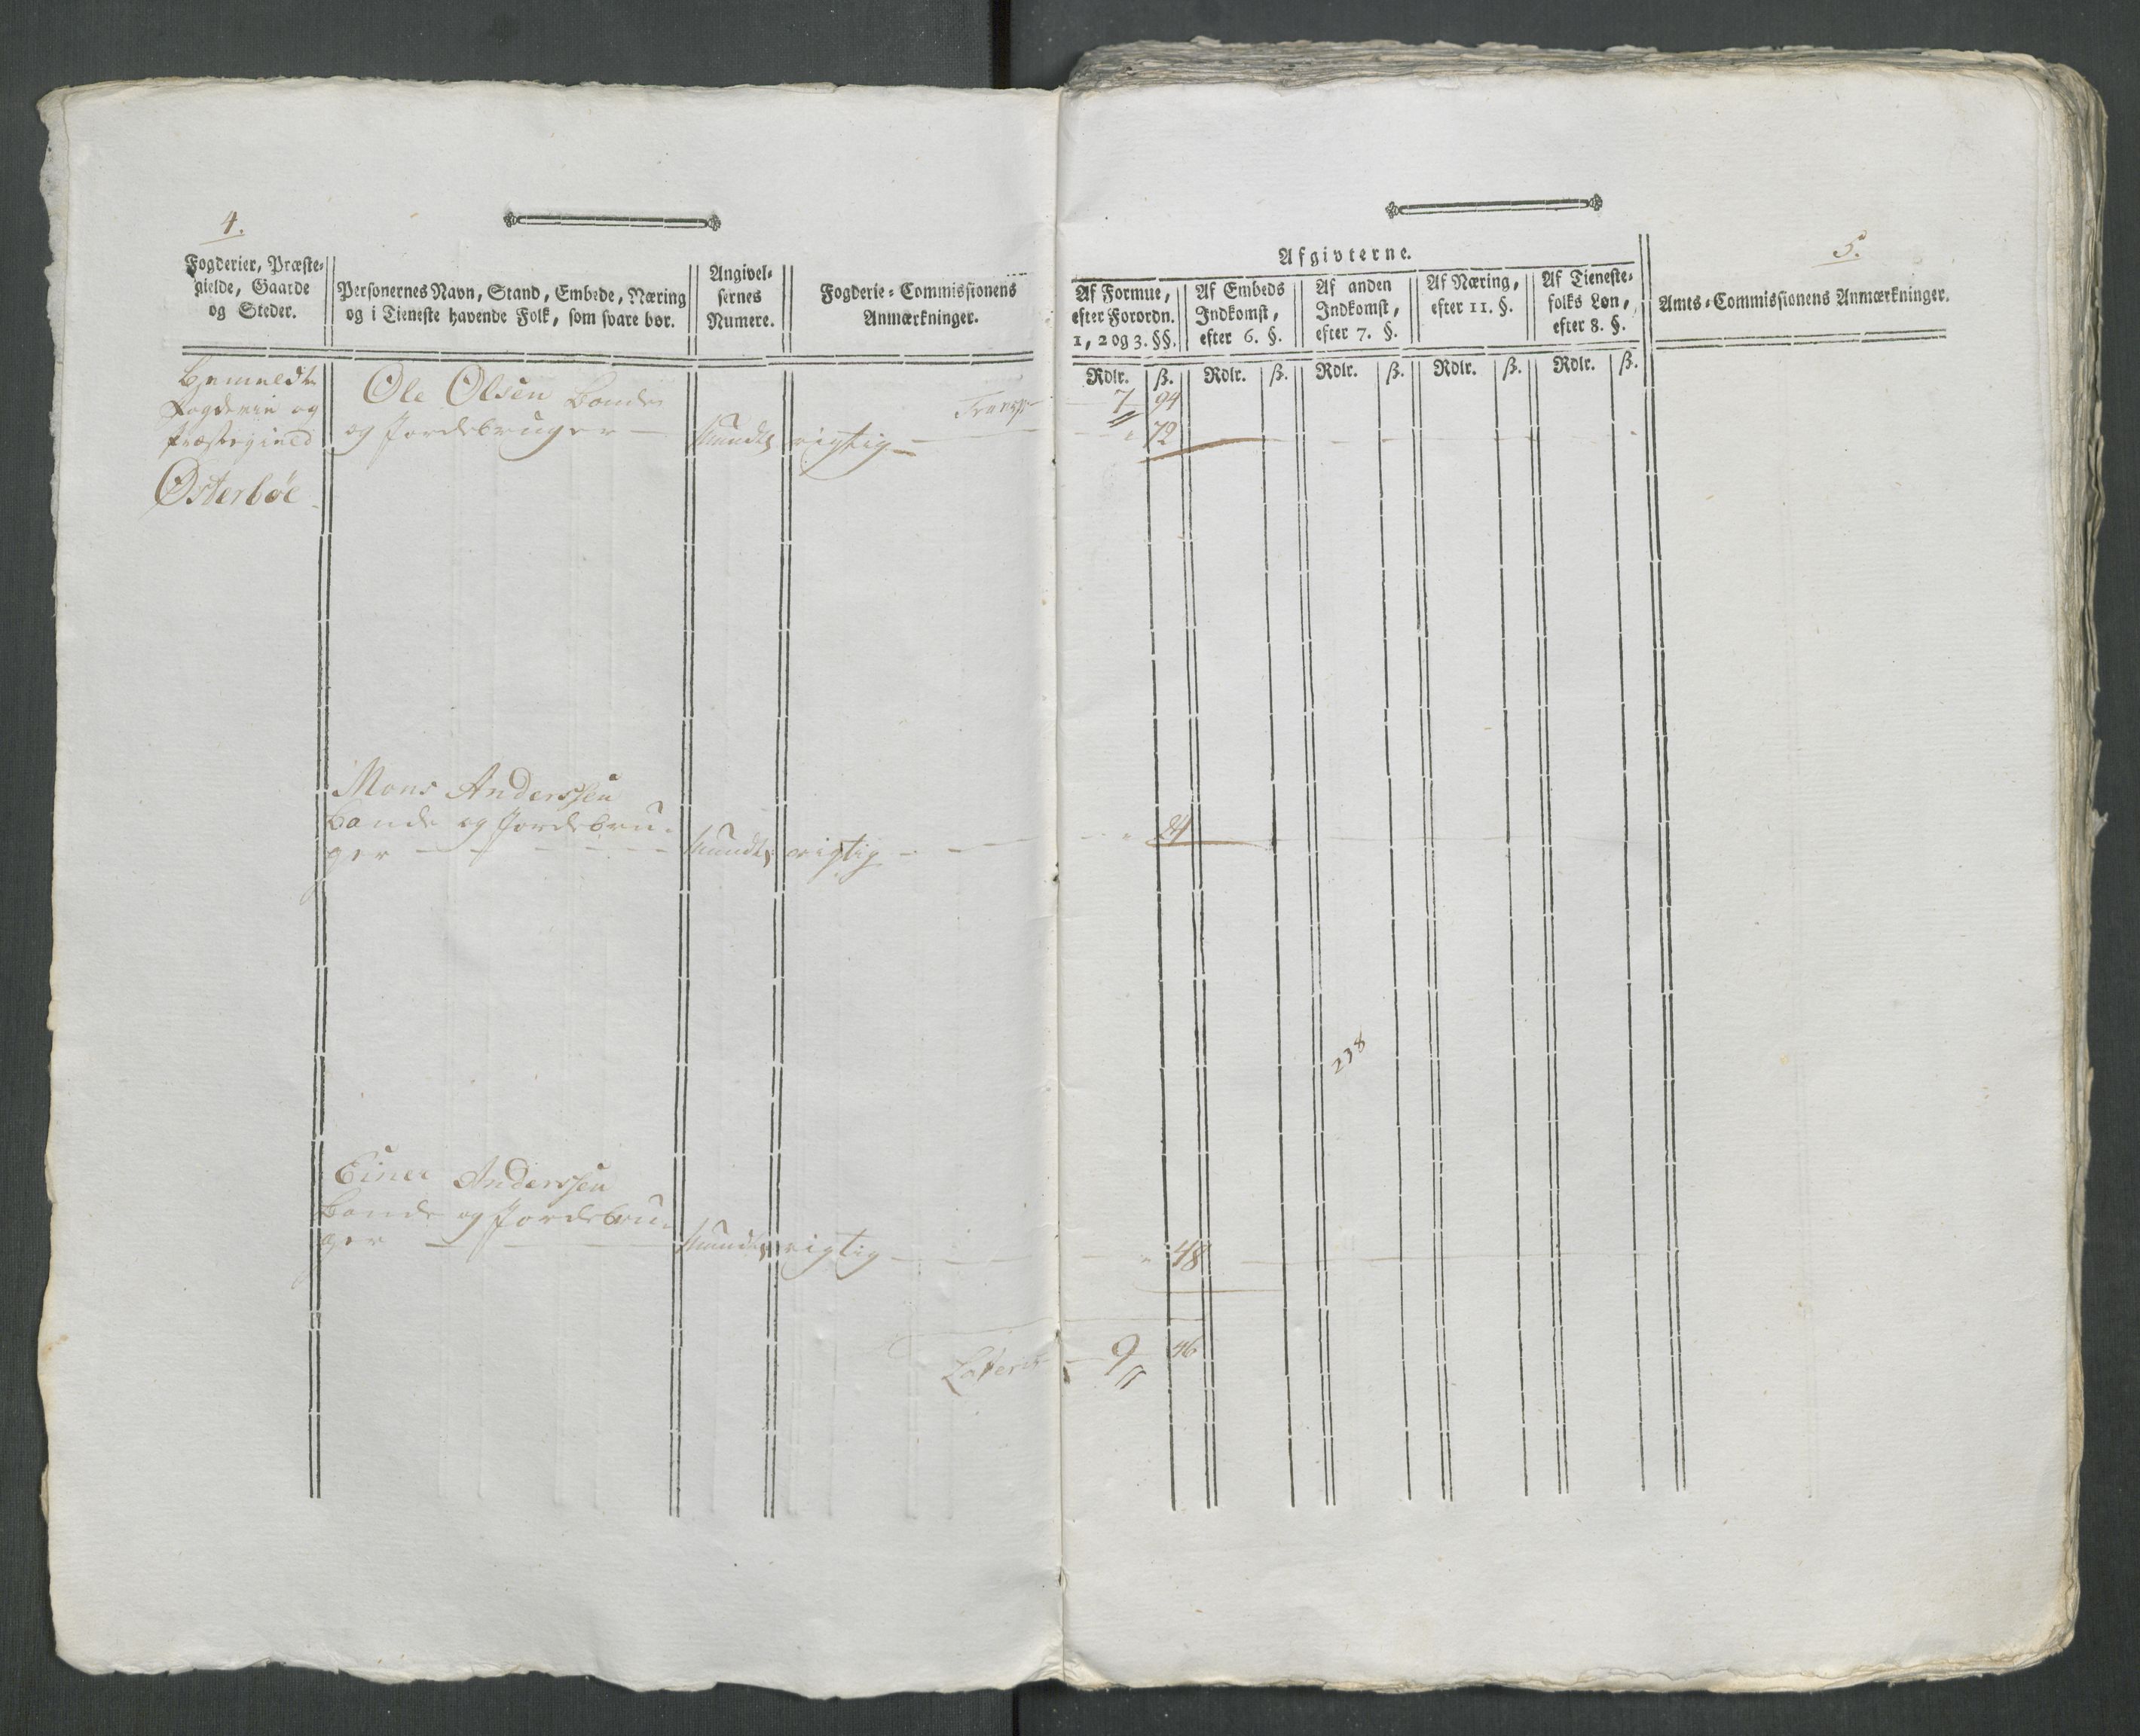 4.
Fogderier, Præste-
gielde, Gaarde
og Steder.
Personernes Navn, Stand, Embede, Næring
og i Tieneste havende Folk, som svare bør.
Angivel-
sernes
Numere.
Fogderie-Commissionens
Anmærkninger.
Bemeldte
Fogderie og
Præstegield
Østerbøe
Ole Olsen Bonde
og Jordebruger — Mundtl. rigtig —
Transp
Mons Anderssen
Bonde og Jordebru-
ger — Mundtl. rigtig —
Einer Anderssen
Bonde og Jordebru-
ger — Mundtl. rigtig —
Lateris
5.
Afgivterne.
Af Formue,
efter Forordn.
1, 2 og 3. §§.
Af Embeds
Indkomst,
efter 6. §.
Af anden
Indkomst,
efter 7. §.
Af Næring,
efter 11. §.
Af Tieneste-
folks Løn,
efter 8. §.
Amts-Commissionens Anmærkninger.
Rdlr. ß. Rdlr. ß. Rdlr. ß. Rdlr. ß. Rdlr. ß.
7 94
" 72
" 24
238
" 48
9 46